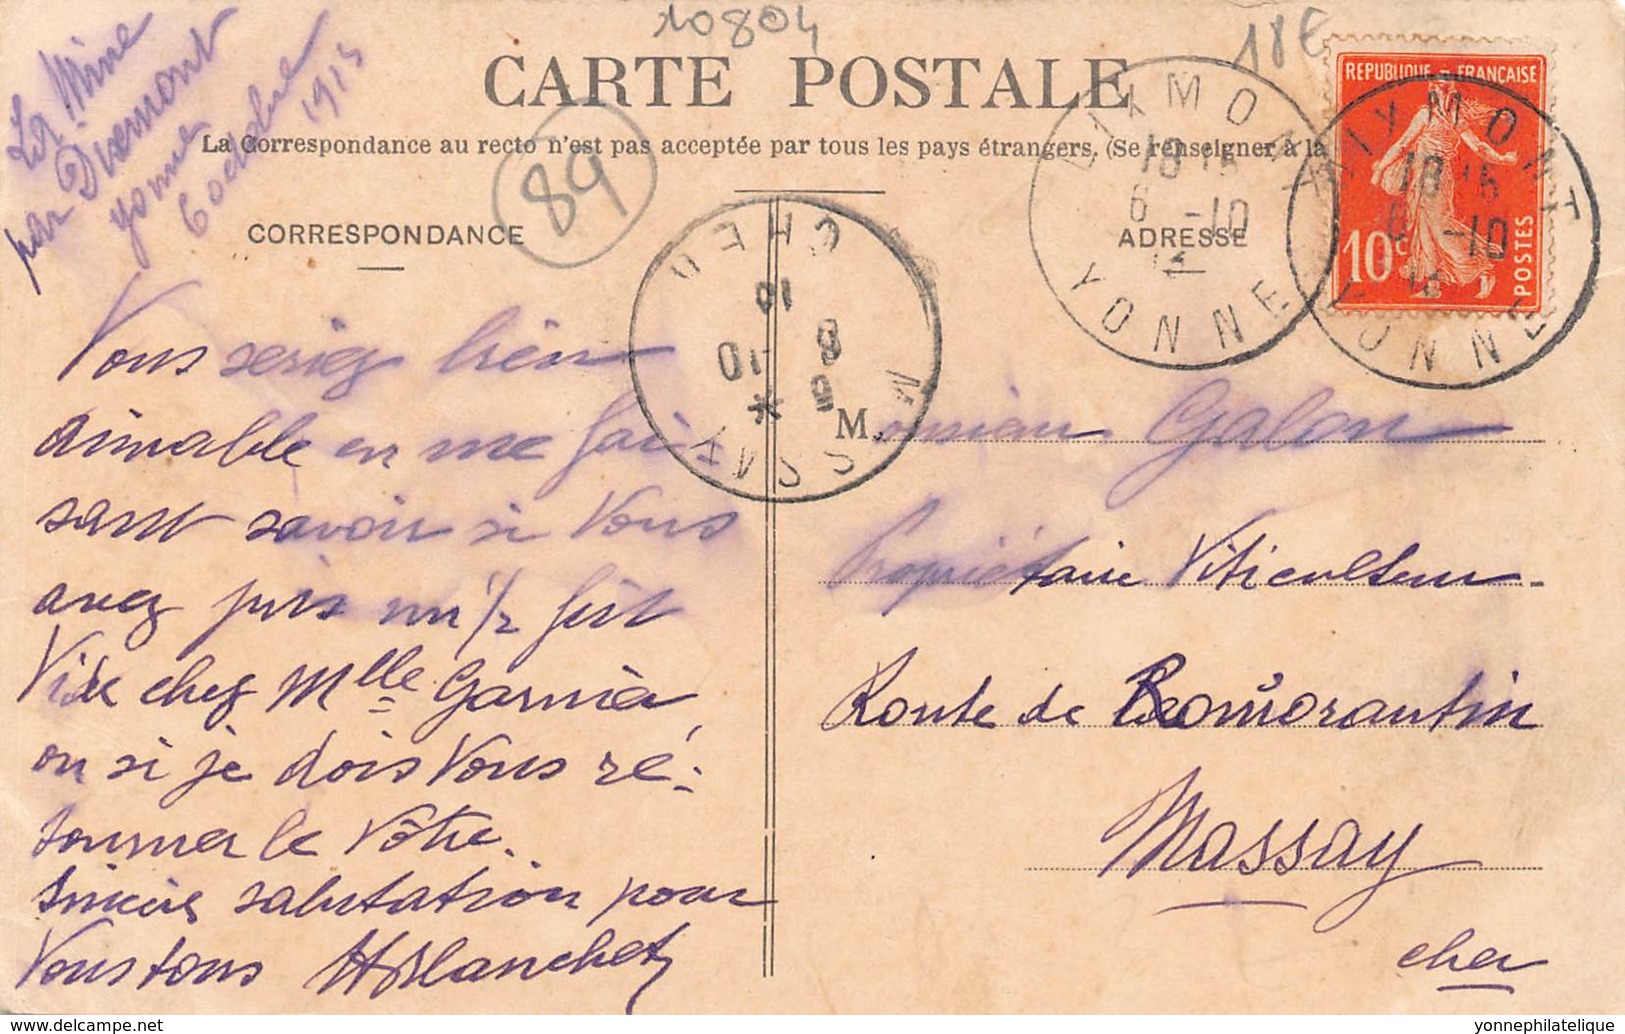 10804
18€
La Mine
par Dixmont
Yonne
6 octobre
1913
CARTE POSTALE
La Correspondance au recto n'est pas acceptée par tous les pays étrangers. (Se renseigner à la
89
CORRESPONDANCE
ADRESSE
REPUBLIQUE - FRANÇAISE
10c
POSTES
DIXMONT
18 15
6 -10
13
YONNE
DIXMONT
18 15
6 -10
13
YONNE
MASSAY
CHER
10
8 -10
Vous seriez bien
aimable en me fai-
sant savoir si Vous
avez pris un 1/2 fût
Vide chez Mlle Garnier
ou si je dois Vous ré-
tourner le Vôtre.
Sincère salutation pour
Vous tous HBlanchet
Monsieur Galon
Propriétaire Viticulteur
Route de Romorantin
Massay
Cher
www.delcampe.net
yonnephilatelique